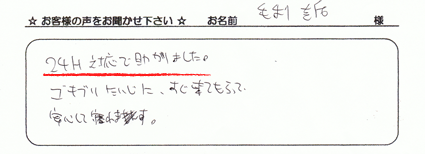 ☆ お客様の声をお聞かせ下さい ☆ お名前 様
24H対応で助かりました。
ゴキブリたいじに、すぐ来てもらって
安心して寝れます。